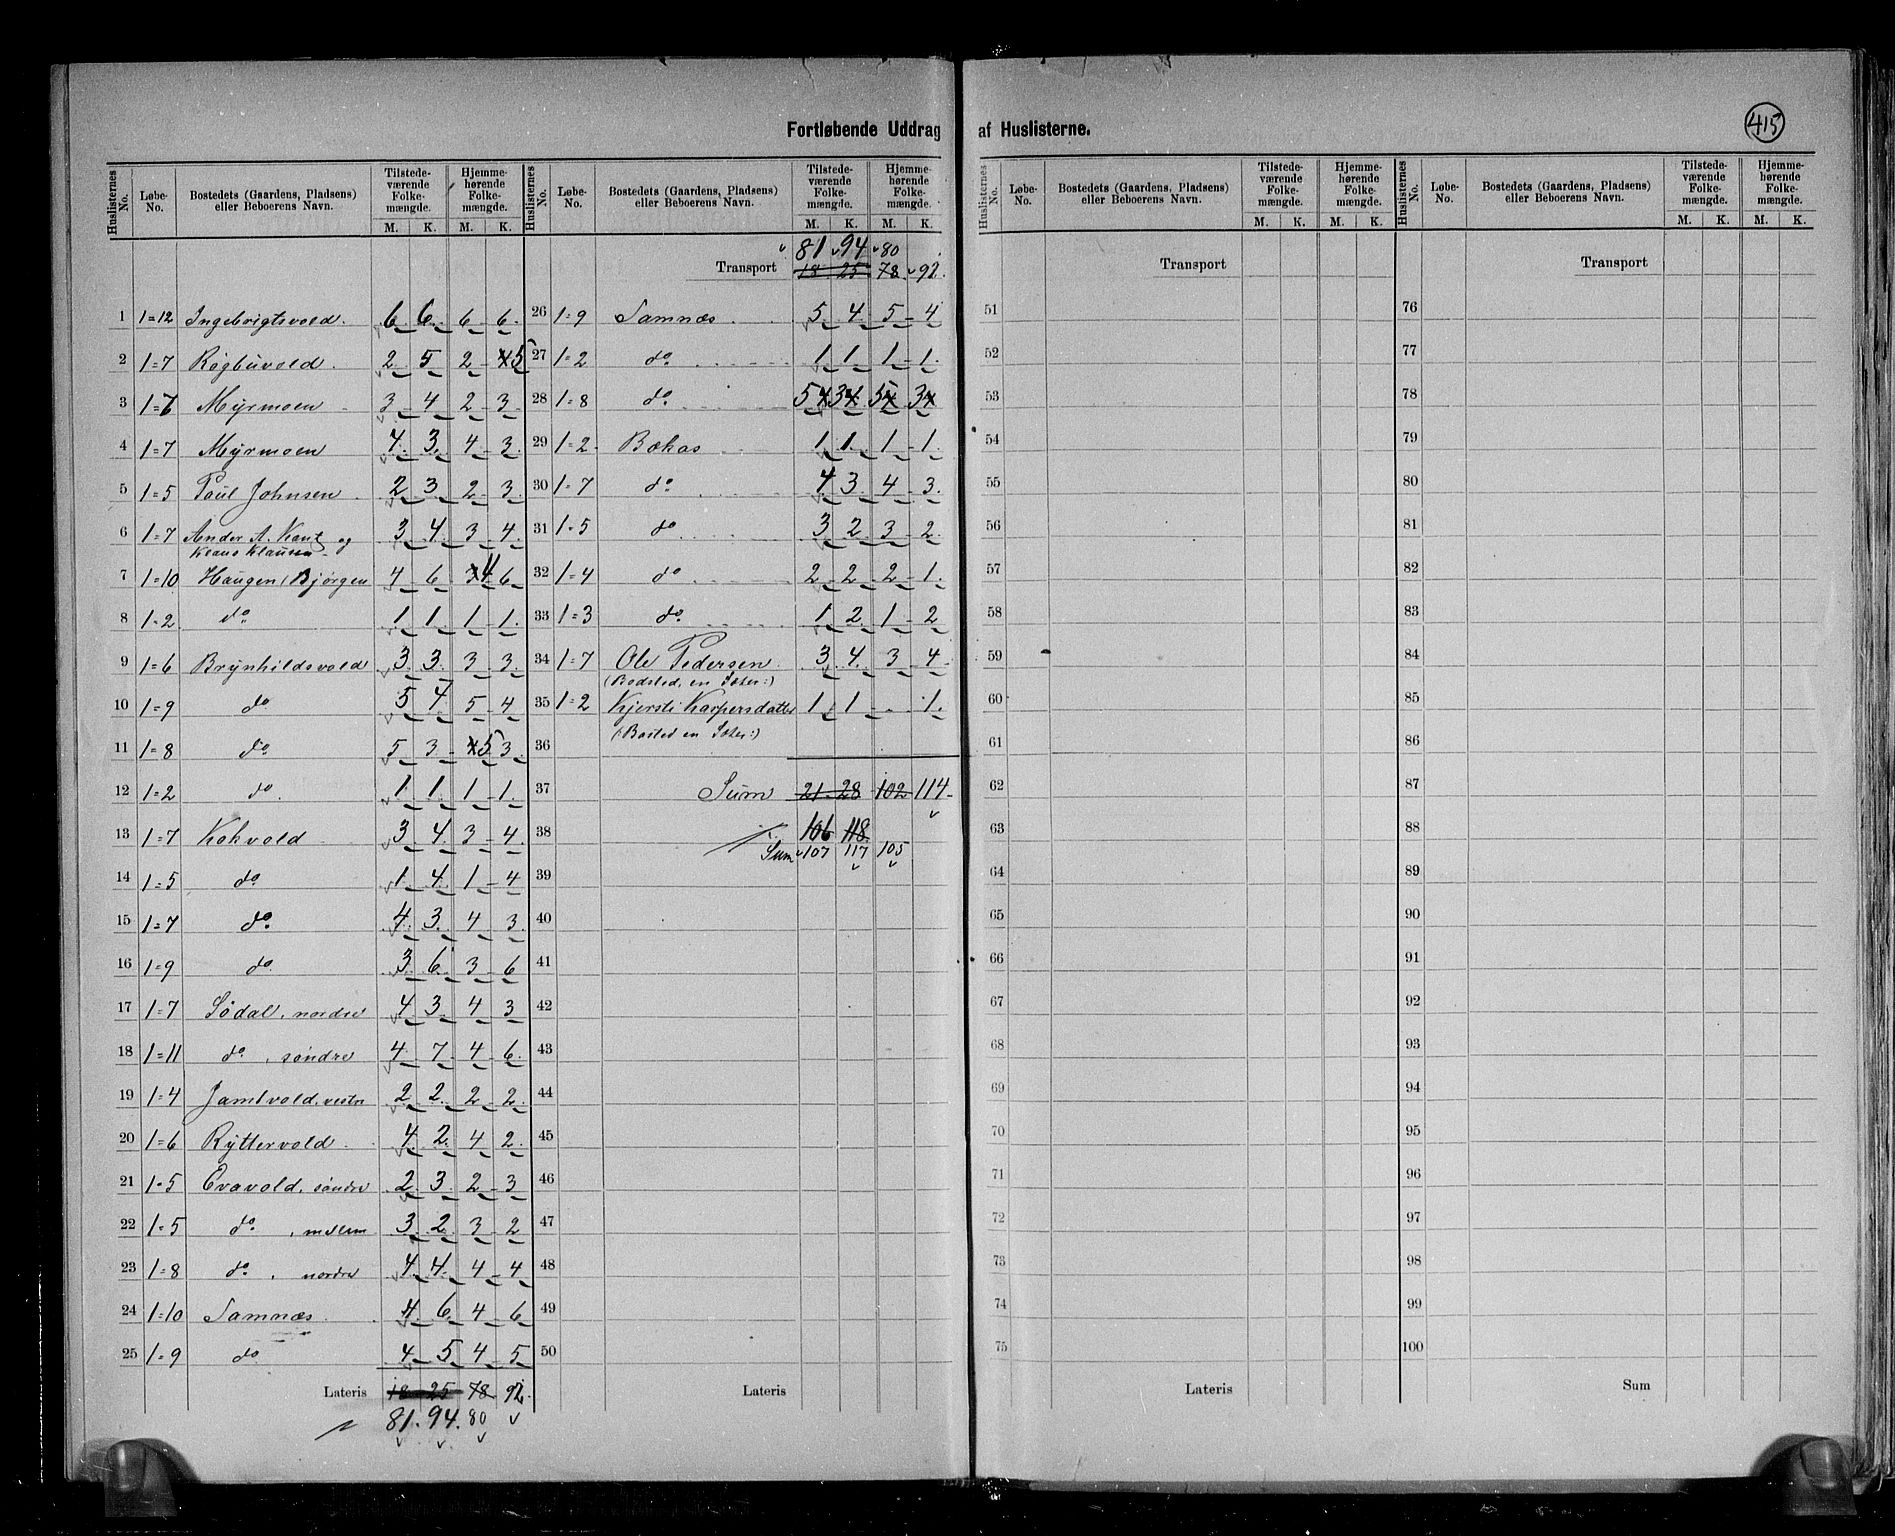 Fortløbende Uddrag af Huslisterne.
415
Huslisternes No. | Løbe-No. | Bostedets (Gaardens, Pladsens) eller Beboerens Navn. | Tilstedeværende Folkemængde. M. K. | Hjemmehørende Folkemængde. M. K.
1 1=12 Ingebrigtsvold. 6 6 6 6
2 1=7 2 5 2 4 5
3 1=7 Myrmoen 3 4 2 3
4 1=7 Myrmoen 4 3 4 3
5 1=5 Paul Johnsen 2 3 2 3
6 1=7 Ander A. og Klaus Klausen 3 4 3 4
7 1=10 Haugen (Bjørgen 4 6 3 4 6
8 1=2 do 1 1 1 1
9 1=6 Brynhildsvold 3 3 3 3
10 1=9 do 5 4 5 4
11 1=8 do 5 3 4 5 3
12 1=2 do 1 1 1 1
13 1=7 Kokvold 3 4 3 4
14 1=5 do 1 4 1 4
15 1=7 do 4 3 4 3
16 1=9 do 3 6 3 6
17 1=7 Sødal, nordre 4 3 4 3
18 1=11 do, søndre 4 7 4 6
19 1=4 Jamtvold, vestre 2 2 2 2
20 1=6 Ryttervold 4 2 4 2
21 1=5 Evavold, søndre 2 3 2 3
22 1=5 do, mellem 3 2 3 2
23 1=8 do, nordre 4 4 4 4
24 1=10 Samnæs 4 6 4 6
25 1=9 do 4 5 4 5
Lateris 18 25 78 92
81 94 80
Huslisternes No. | Løbe-No. | Bostedets (Gaardens, Pladsens) eller Beboerens Navn. | Tilstedeværende Folkemængde. M. K. | Hjemmehørende Folkemængde. M. K.
81 94 80
Transport 18 25 78 92
26 1=9 Samnæs 5 4 5 4
27 1=2 do 1 1 1 1
28 1=8 do 5 4 3 4 5 4 3 4
29 1=2 Bækas 1 1 1 1
30 1=7 do 4 3 4 3
31 1=5 do 3 2 3 2
32 1=4 do 2 2 2 1
33 1=3 do 1 2 1 2
34 1=7 Ole Pedersen 3 4 3 4
(Bodsted, en
35 1=2 Kjersti Kaspersdatter 1 1 - 1
(Bosted en
36
37 Sum 21 28 102 114
38 106 118
Sum 107 117 105
39
40
41
42
43
44
45
46
47
48
49
50
Lateris
Huslisternes No. | Løbe-No. | Bostedets (Gaardens, Pladsens) eller Beboerens Navn. | Tilstedeværende Folkemængde. M. K. | Hjemmehørende Folkemængde. M. K.
Transport
51
52
53
54
55
56
57
58
59
60
61
62
63
64
65
66
67
68
69
70
71
72
73
74
75
Lateris
Huslisternes No. | Løbe-No. | Bostedets (Gaardens, Pladsens) eller Beboerens Navn. | Tilstedeværende Folkemængde. M. K. | Hjemmehørende Folkemængde. M. K.
Transport
76
77
78
79
80
81
82
83
84
85
86
87
88
89
90
91
92
93
94
95
96
97
98
99
100
Sum